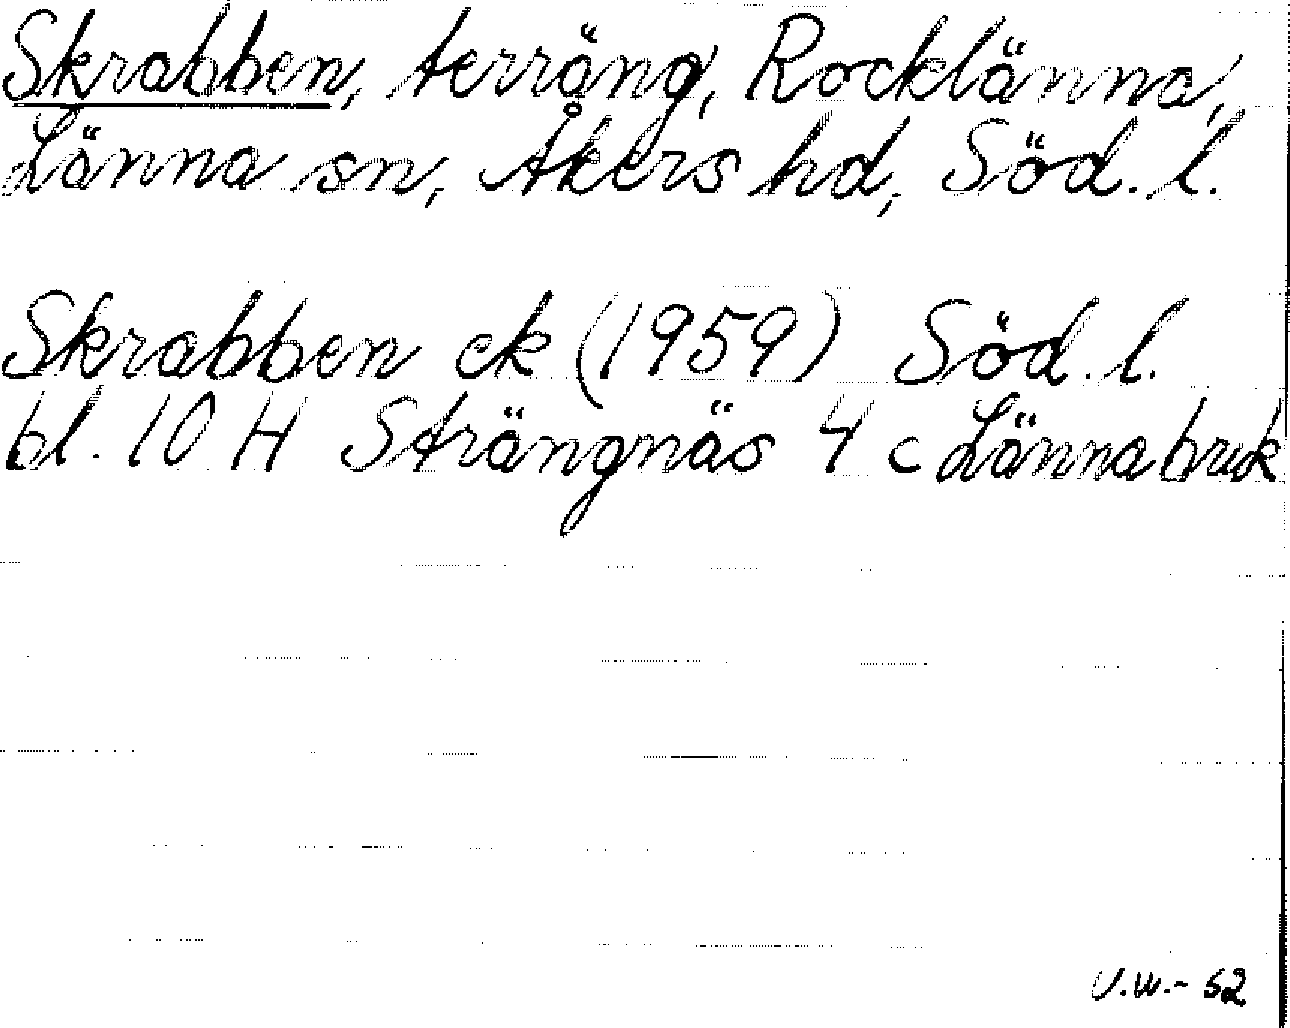 Skrabben, terräng, Rocklänna,
Länna sn, Åkers hd, Söd. l.
Skrabben ek (1959) Söd. l.
bl. 10 H Strängnäs 4 c Länna bruk
U.W.- 52